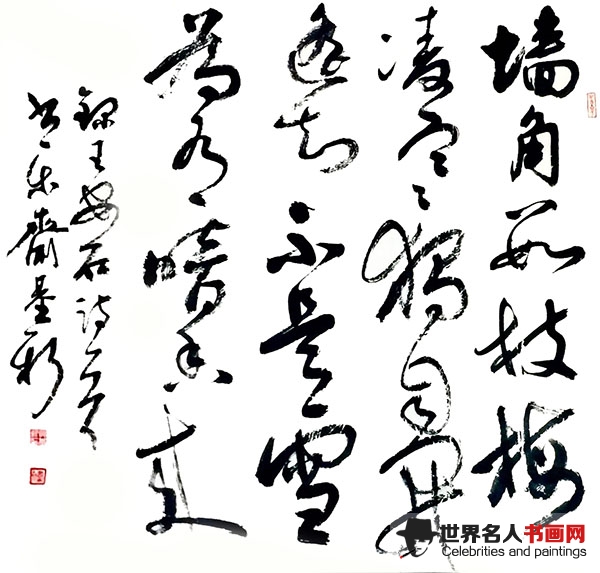 墙角数枝梅
凌寒独自開
遥知不是雪
為有暗香来
録王安石诗一首
世界名人书画网
Celebrities and paintings